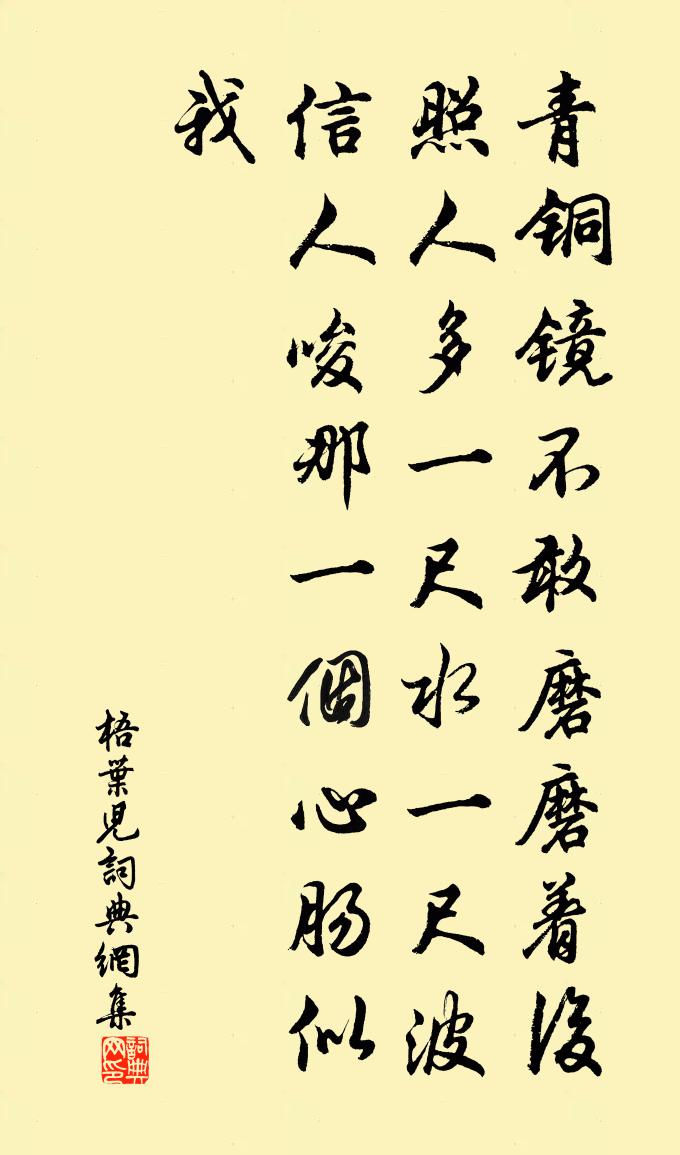 青铜镜不敢磨磨着後
照人多一尺水一尺波
信人唆那一個心肠似
我
梧葉児詞典網集
詞典网印